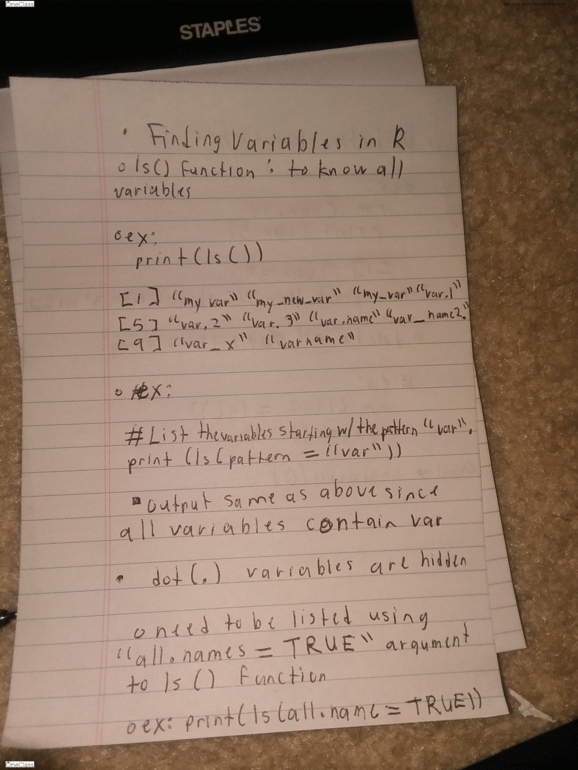 OneClass
STAPLES
• Finding Variables in R
o ls() Function : to know all
variables
o ex:
print(ls())
[1] "my var" "my_new_var" "my_var" "var.1"
[5] "var.2" "var.3" "var.name" "var_name2."
[9] "var_x" "varname"
o ex:
# List the variables starting w/ the pattern "var".
print (ls(pattern = "var"))
▪ output same as above since
all variables contain var
• dot(.) variables are hidden
o need to be listed using
"all.names = TRUE" argument
to ls() Function
o ex: print(ls(all.name = TRUE))
OneClass